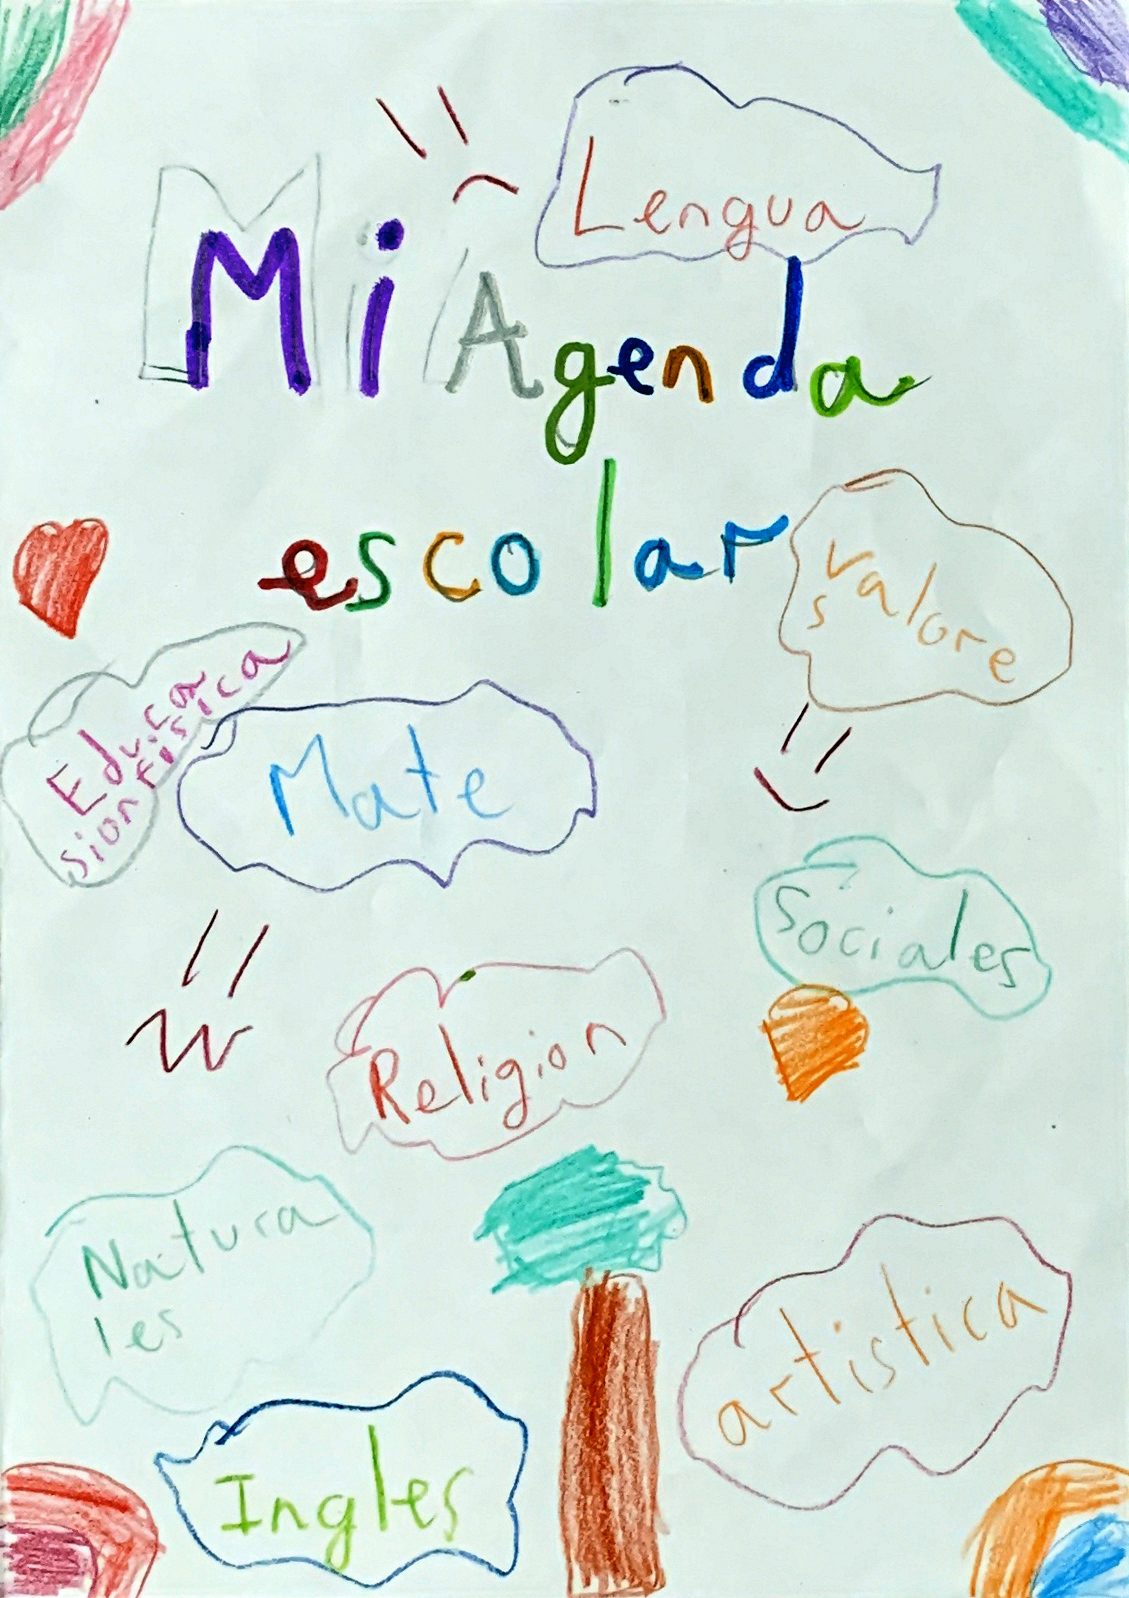 Lengua
Mi Agenda
escolar
valore
s
Educa
sion Fisica
Mate
Sociales
Religion
Natura
les
artistica
Ingles